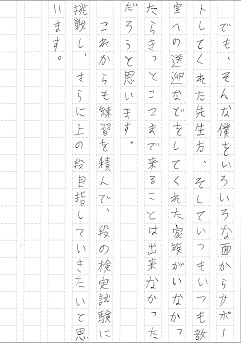 でも、そんな僕をいろいろな面からサポー
トしてくれた先生方、そしていつもいつも教
室への送迎などをしてくれた家族がいなかっ
たらきっとここまで来ることは出来なかった
だろうと思います。
これからも練習を積んで、段の検定試験に
挑戦し、さらに上の段目指していきたいと思
います。